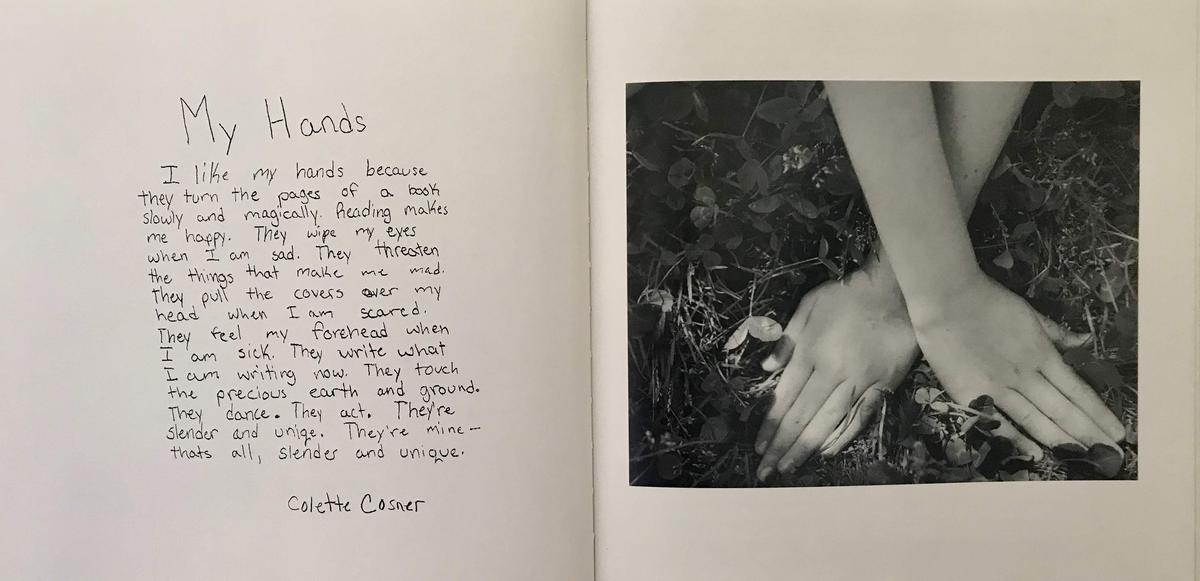 My Hands
I like my hands because
they turn the pages of a book
slowly and magically. Reading makes
me happy. They wipe my eyes
when I am sad. They threaten
the things that make me mad.
They pull the covers over my
head when I am scared.
They feel my forehead when
I am sick. They write what
I am writing now. They touch
the precious earth and ground.
They dance. They act. They're
slender and uniqe. They're mine-
thats all, slender and unique.
Colette Cosner